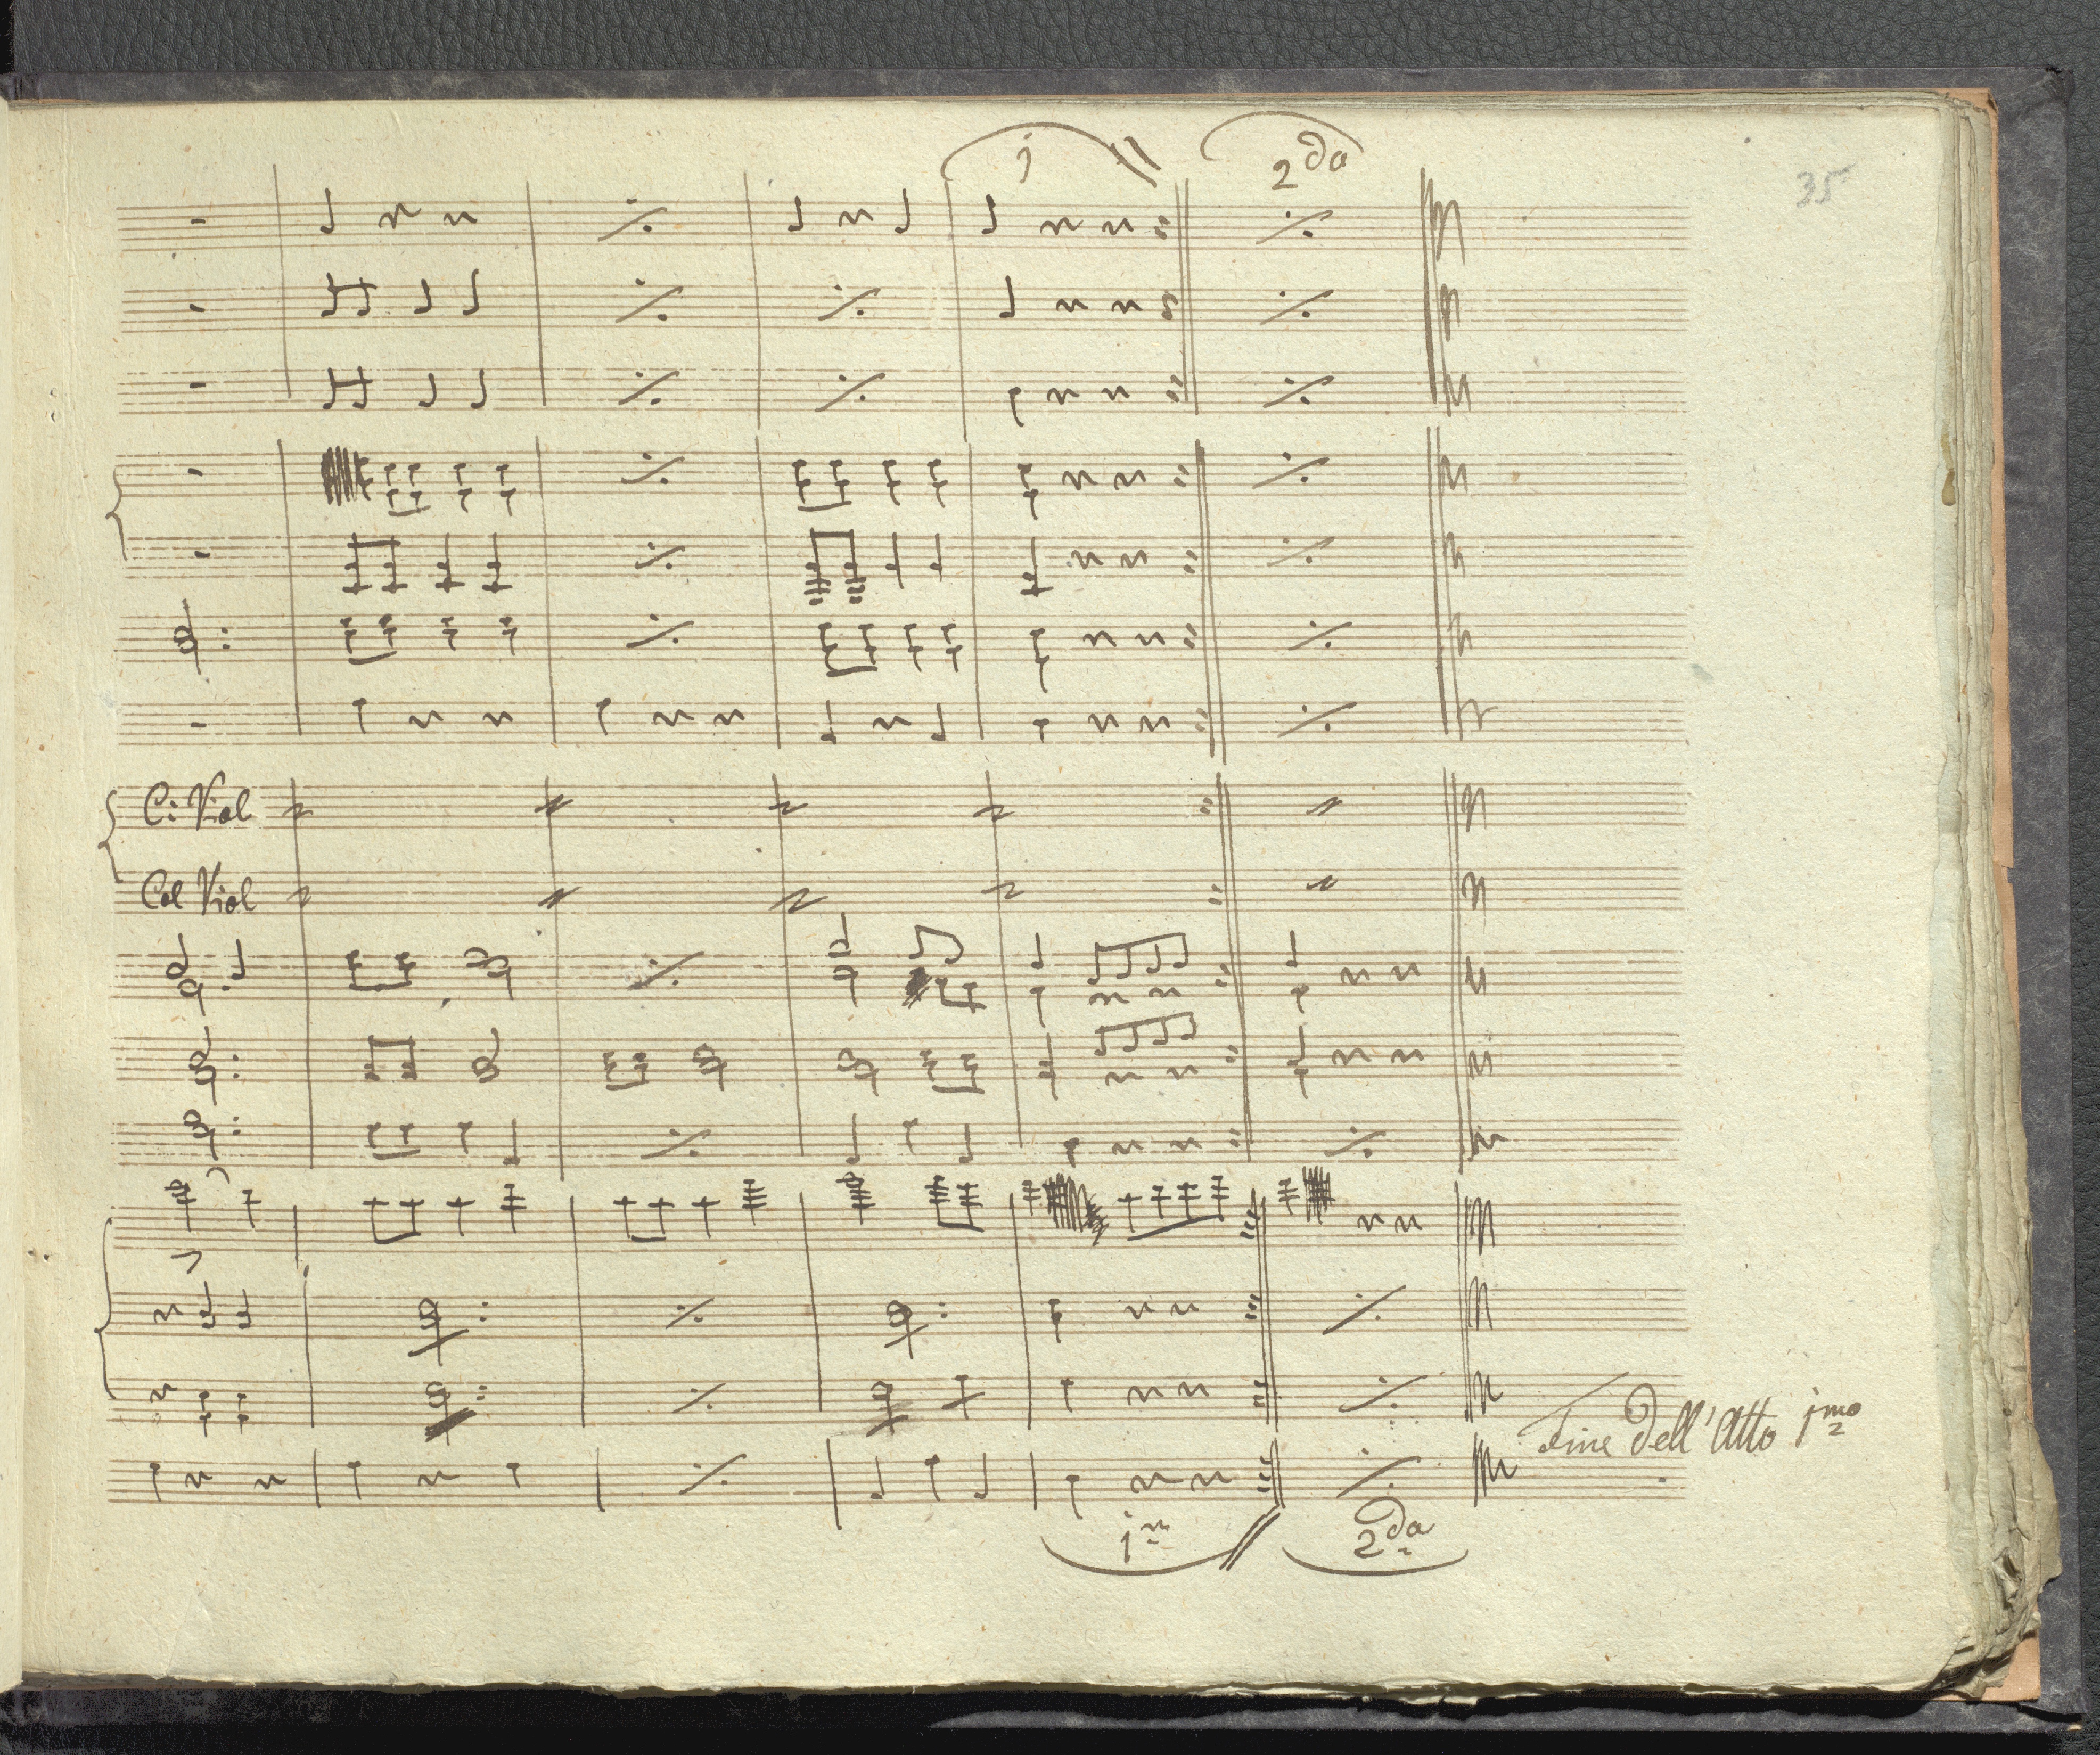 j 2da
35
C: Viol
Col Viol
Fine dell'Atto jmo
1m 2da